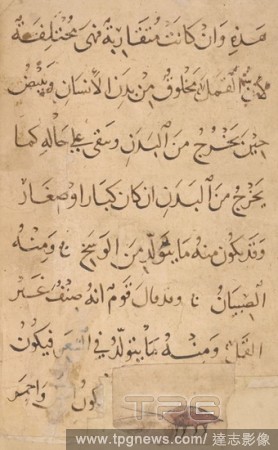 هذه وان كانت متقاربة فهى مختلفة
لان القمل مخلوق من بدن الانسان وبيض
حين يخرج من البدن ويبقى على حاله كما
يخرج من البدن ان كان كبارا وصغار
وقد يكون منه ما يتولد من الوسخ ومنه
الصيبان وقد قال قوم انه صنف غير
القمل ومنه ما يتولد فى الشعر فيكون
واحمر
TPG
www.tpgnews.com/達志影像